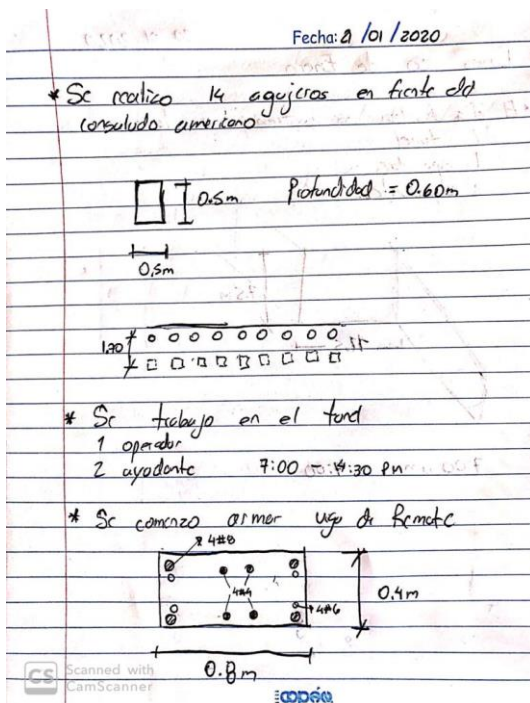 Fecha: 21 /01 /2020
* Se realizo 14 agujeros en frente del
consulado americano
0.5m Profundidad = 0.60m
0.5m
1.20
* Se trabajo en el
1 operador
2 ayudante 7:00 - :30 Pm
* Se comenzo armar de Remate
4#8
4#4
4#6
0.4m
0.8m
CS Scanned with
CamScanner